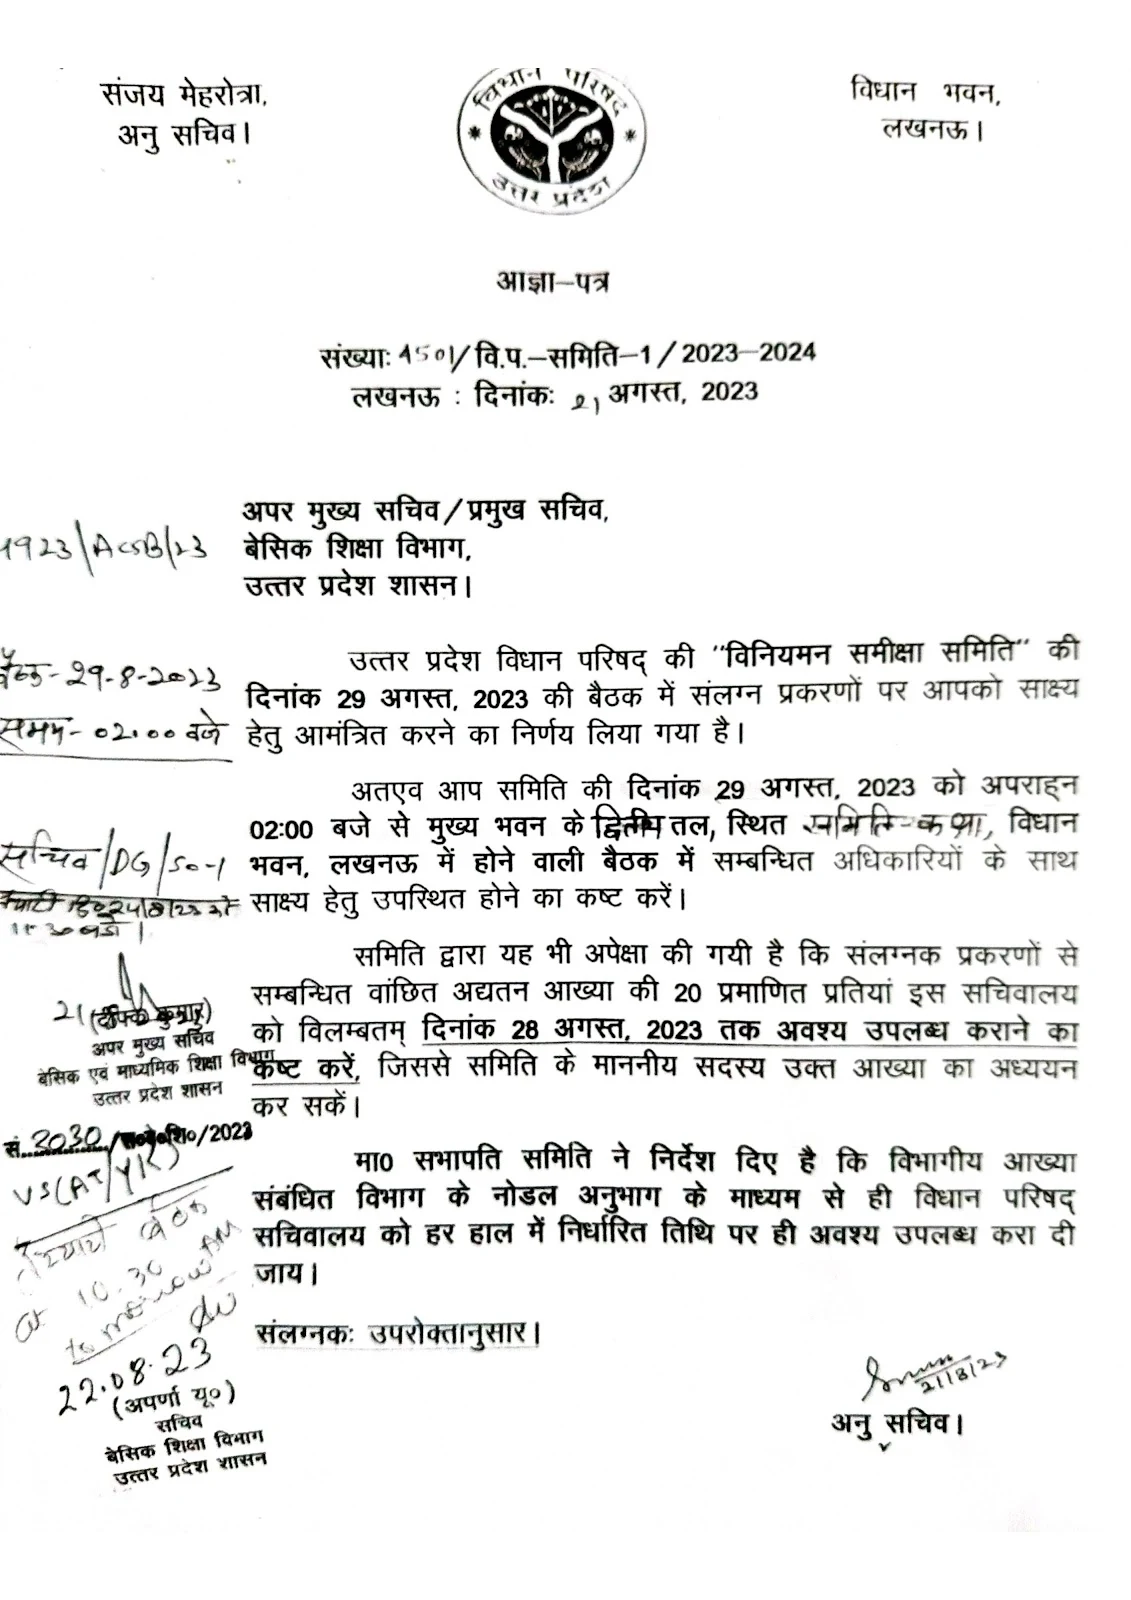 संजय मेहरोत्रा,
अनु सचिव।
विधान परिषद
उत्तर प्रदेश
विधान भवन,
लखनऊ।
आज्ञा-पत्र
संख्याः 1501/वि.प.-समिति-1/2023-2024
लखनऊ : दिनांकः 21 अगस्त, 2023
अपर मुख्य सचिव/प्रमुख सचिव,
बेसिक शिक्षा विभाग,
उत्तर प्रदेश शासन।
1923/ACSB/23
उत्तर प्रदेश विधान परिषद् की "विनियमन समीक्षा समिति" की
दिनांक 29 अगस्त, 2023 की बैठक में संलग्न प्रकरणों पर आपको साक्ष्य
हेतु आमंत्रित करने का निर्णय लिया गया है।
बैठक-29-8-2023
समय-02.00 बजे
अतएव आप समिति की दिनांक 29 अगस्त, 2023 को अपराह्न
02:00 बजे से मुख्य भवन के द्वितीय तल, स्थित समिति-कक्ष, विधान
भवन, लखनऊ में होने वाली बैठक में सम्बन्धित अधिकारियों के साथ
साक्ष्य हेतु उपस्थित होने का कष्ट करें।
सचिव/DG/SO-1
समिति द्वारा यह भी अपेक्षा की गयी है कि संलग्नक प्रकरणों से
सम्बन्धित वांछित अद्यतन आख्या की 20 प्रमाणित प्रतियां इस सचिवालय
को विलम्बतम् दिनांक 28 अगस्त, 2023 तक अवश्य उपलब्ध कराने का
कष्ट करें, जिससे समिति के माननीय सदस्य उक्त आख्या का अध्ययन
कर सकें।
21
(दीपक कुमार)
अपर मुख्य सचिव
बेसिक एवं माध्यमिक शिक्षा विभाग
उत्तर प्रदेश शासन
सं. 2030/स०बे०शि०/2023
मा0 सभापति समिति ने निर्देश दिए है कि विभागीय आख्या
संबंधित विभाग के नोडल अनुभाग के माध्यम से ही विधान परिषद्
सचिवालय को हर हाल में निर्धारित तिथि पर ही अवश्य उपलब्ध करा दी
जाय।
VS(AT/YK)
बैठक
at 10.30 AM
tomorrow
22.08.23
(अपर्णा यू०)
सचिव
बेसिक शिक्षा विभाग
उत्तर प्रदेश शासन
संलग्नकः उपरोक्तानुसार।
21/8/23
अनु सचिव।